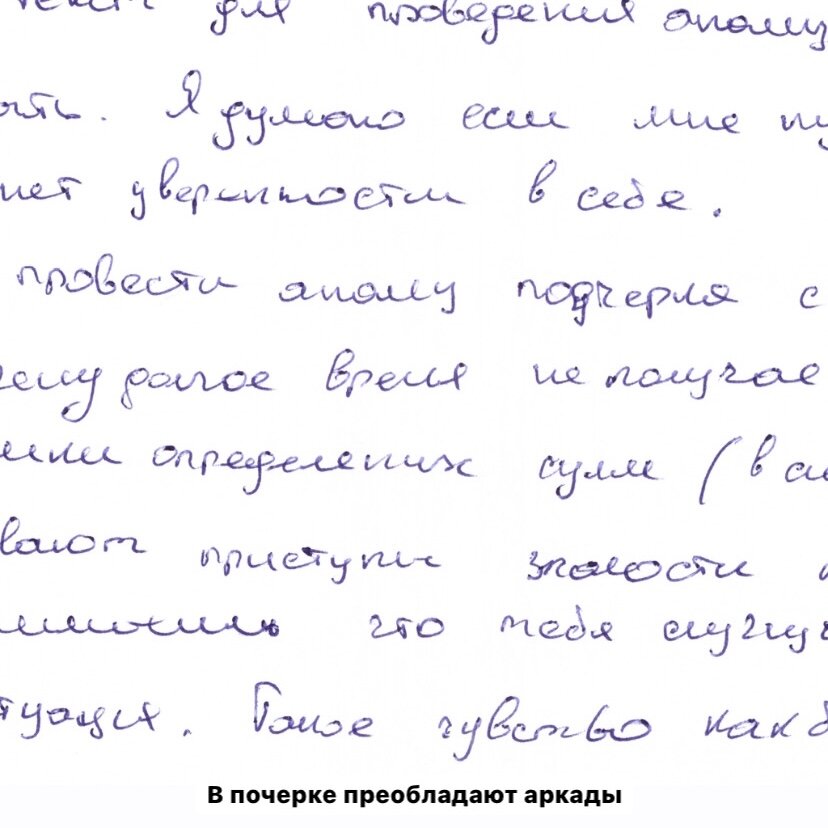 текст для проведения анализ
ыть. Я думаю если мне ну
нет уверенности в себе.
провести анализ подчерка с
чему долгое время не получае
определенных сумм (в
вают приступы жалости
что тебя
туация. Такое чувство как б
В почерке преобладают аркады